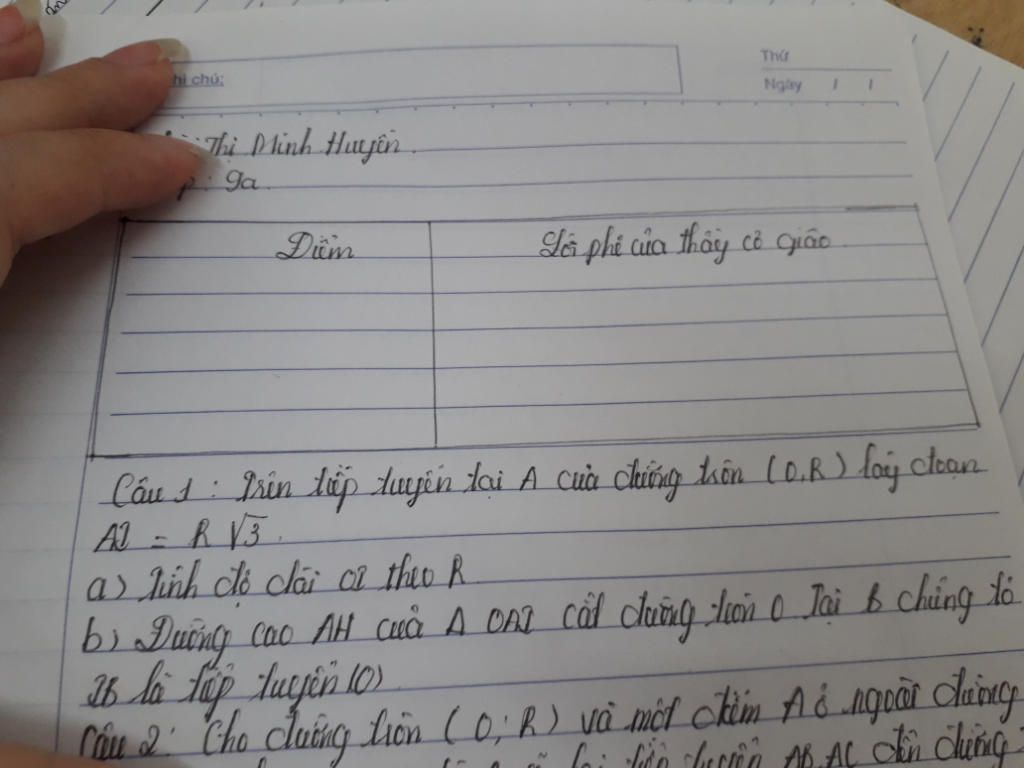 hi chú:
Thứ
Ngày / /
Thị Minh Huyền.
: 9a.
Điểm
Lời phê của thầy cô giáo
Câu 1: Trên tiếp tuyến tại A của đường tròn (O,R) lấy đoạn
AI = R √3.
a) Tính độ dài OI theo R
b) Đường cao AH của Δ OAI cắt đường tròn O tại B chứng tỏ
IB là tiếp tuyến (O)
Câu 2: Cho đường tròn (O; R) và một điểm A ở ngoài đường
tiếp tuyến AB, AC đến đường